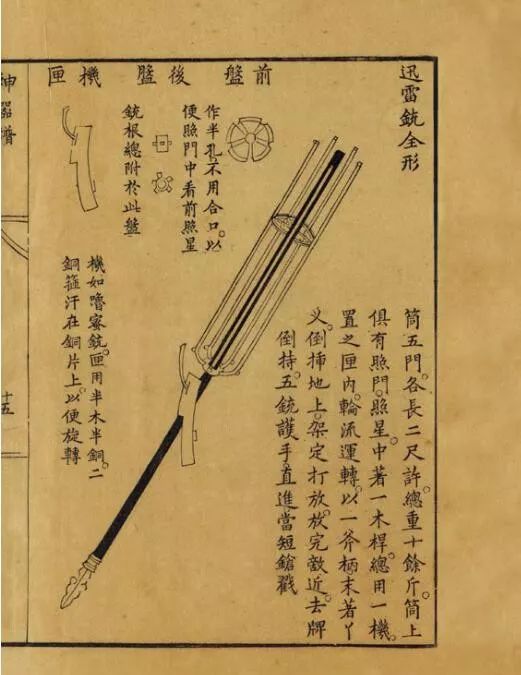 迅雷銃全形
筒五門各長二尺許總重十餘斤筒上
俱有照門照星中著一木桿總用一機
置之匣內輪流運轉以一斧柄末著丫
叉倒揷地上架定打放放完敵近去牌
倒持五銃護手直進當短鎗戳
前盤
作半孔不用合口以
便照門中看前照星
後盤
銃根總附於此盤
機匣
機如嚕密銃匣用半木半銅二
銅箍汗在銅片上以便旋轉
神器譜
十五